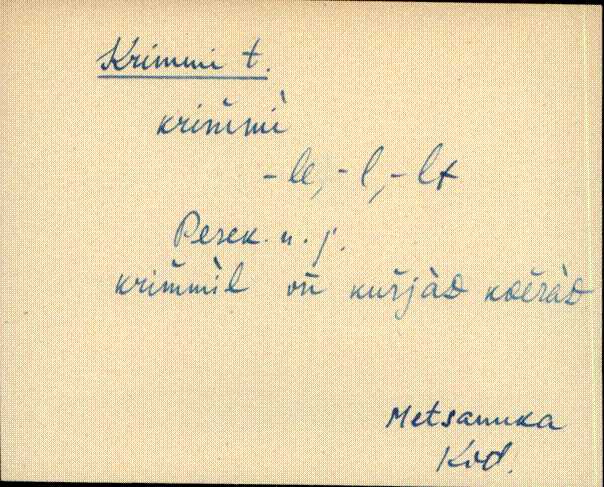 Krimmi t.
krim̆mì
-le, -l, -lt
Perek. n. j.
krim̆mìl on̆ kur̆jàD koĕràD
Metsanuka
Kod.